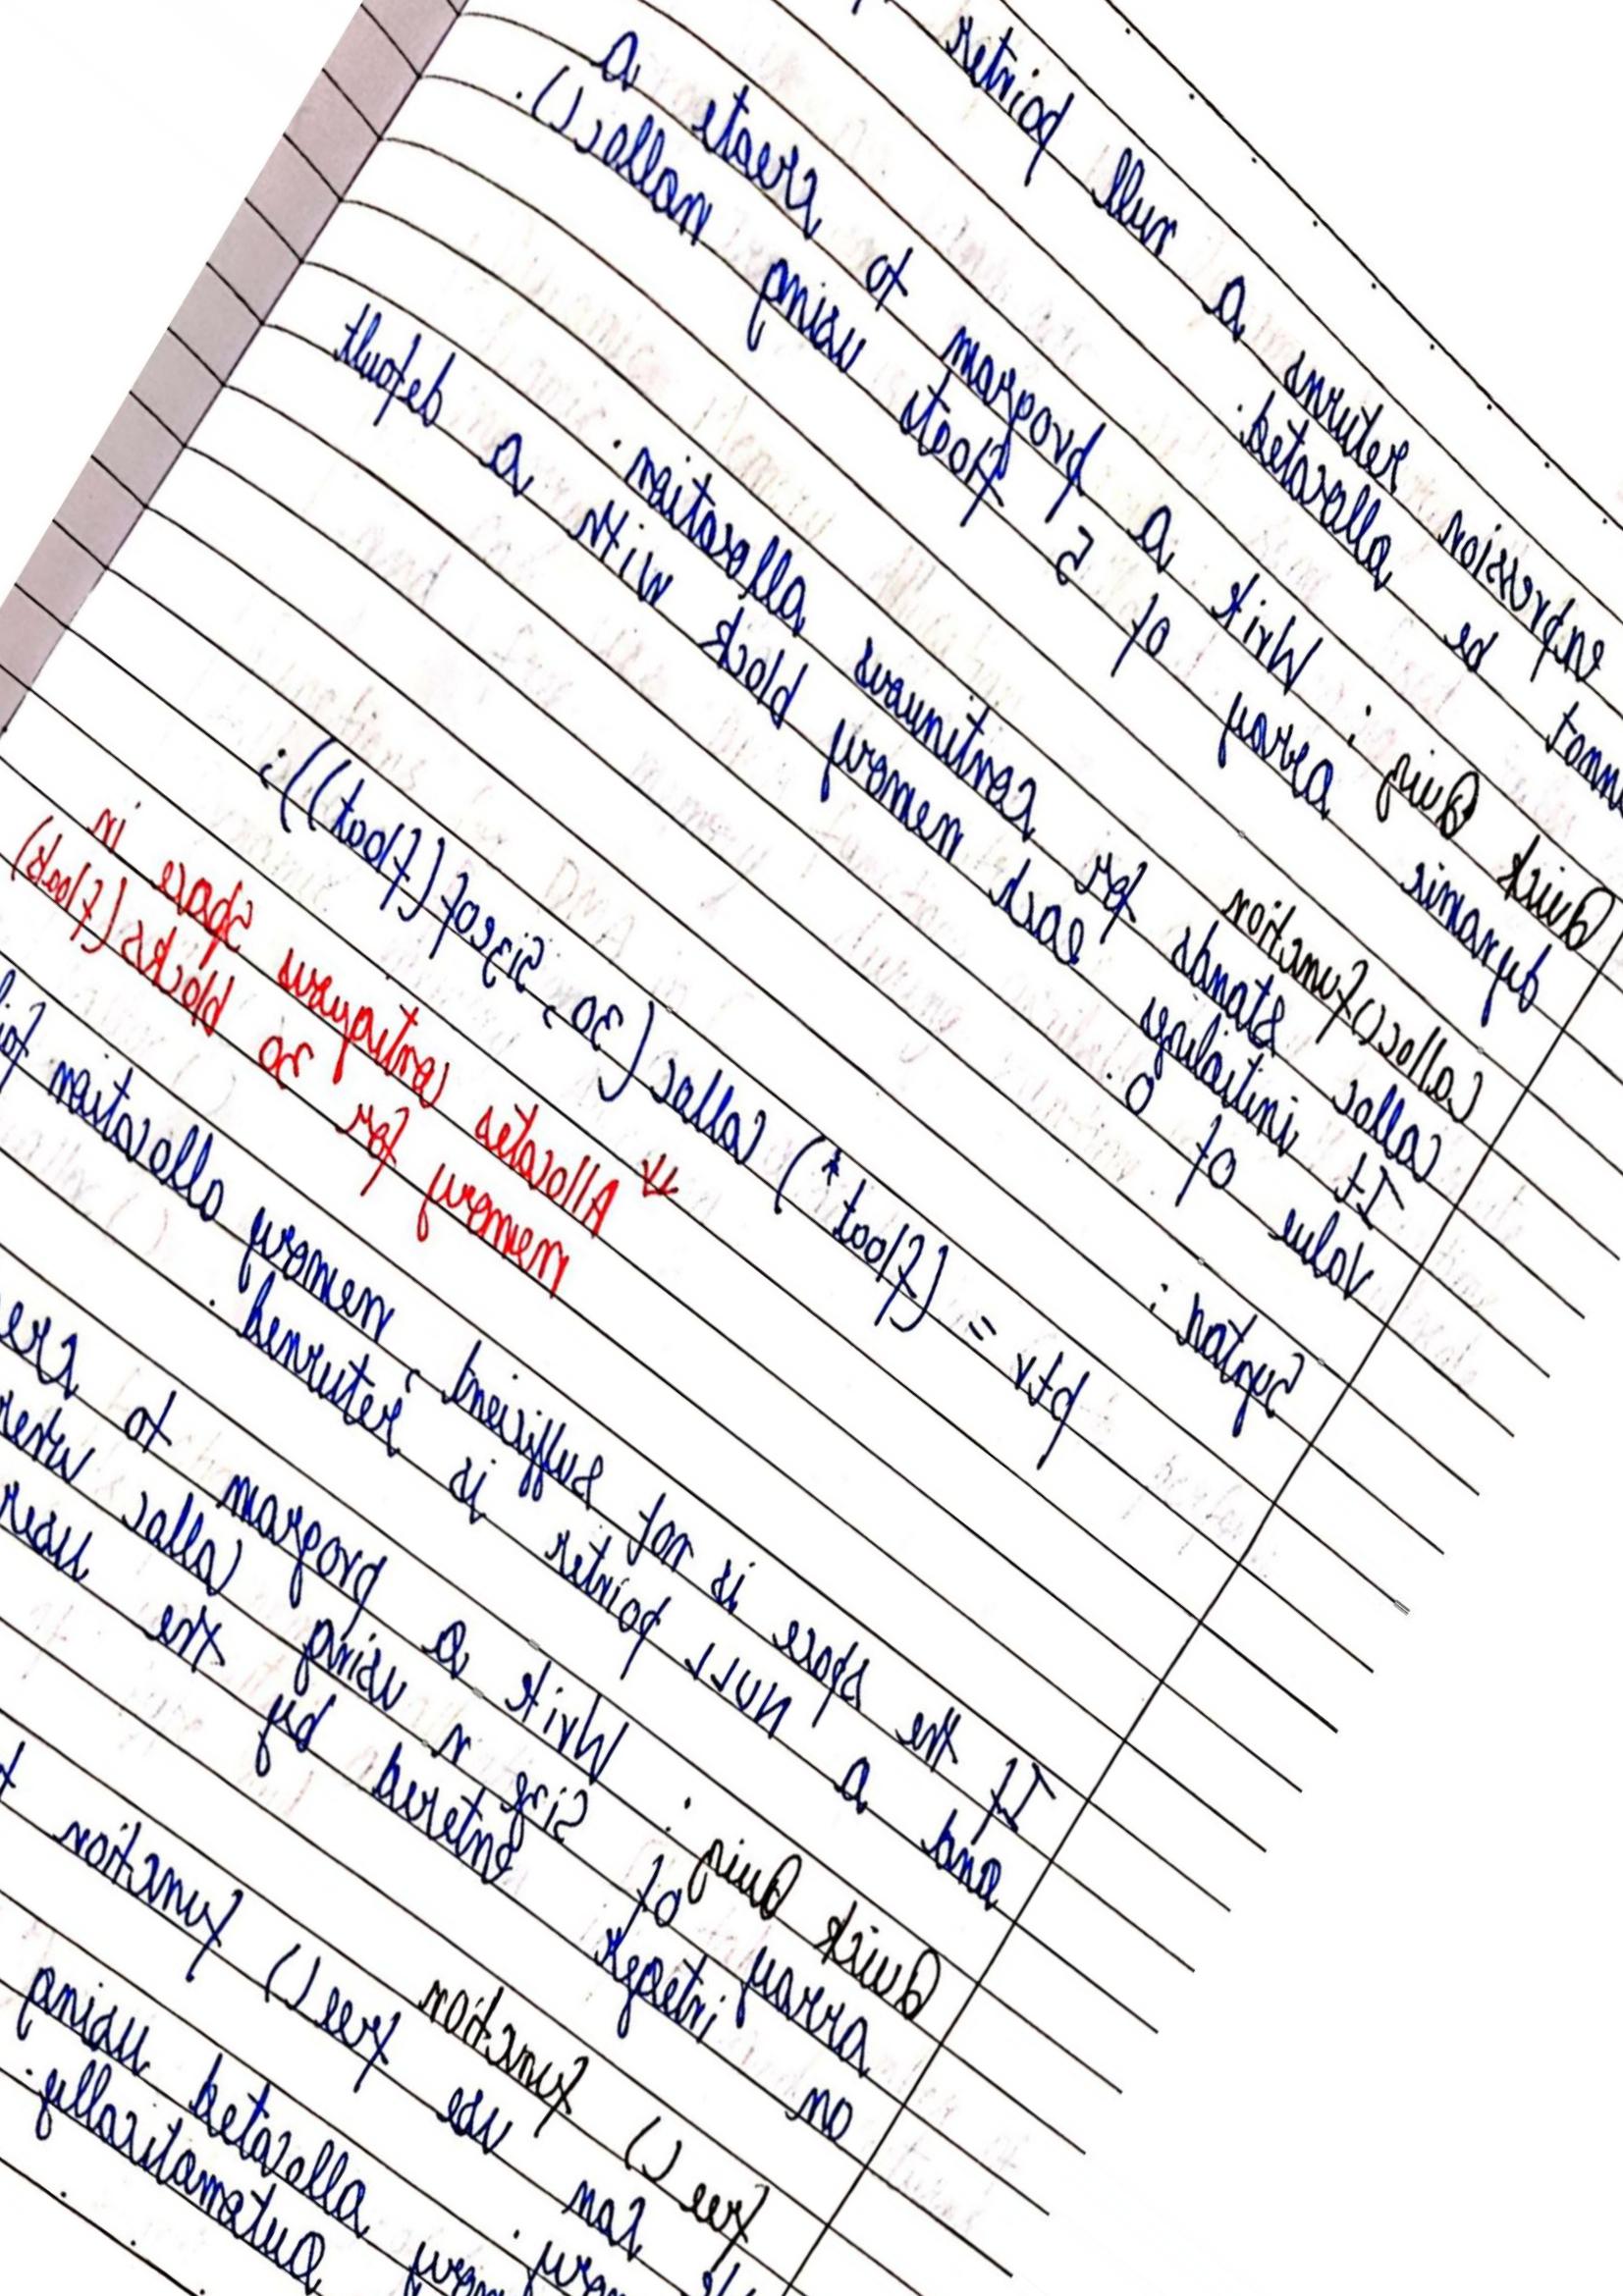 expression returns a null pointer
cannot be allocated.
Quick Quiz : Write a program to create a
dynamic array of 5 floats using malloc().
calloc() function
calloc stands for continuous allocation.
It initialises each memory block with a default
value of 0.
Syntax :
ptr = (float*) calloc (30, sizeof(float));
Allocates contiguous space in
memory for 30 blocks (floats)
If the space is not sufficient, memory allocation
and a NULL pointer is returned.
Quick Quiz : Write a program to
array of size n using calloc where
an integer entered by the user
free() function
can use free() function
allocated using
automatically.